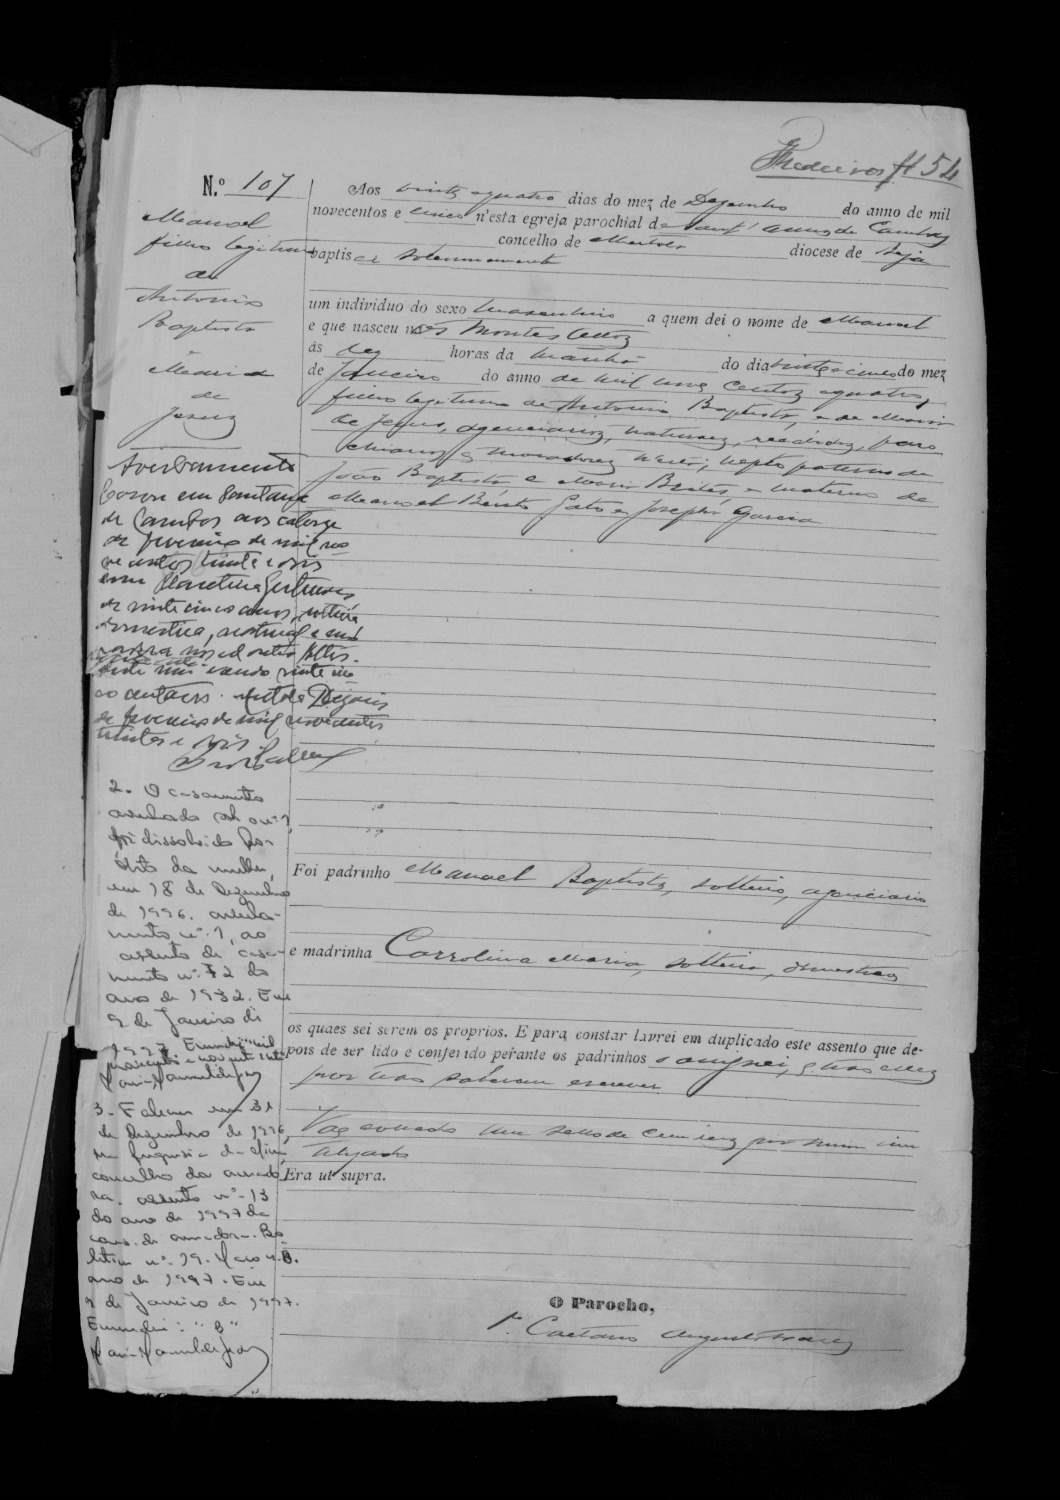 54
N.º 107
Manoel
filho legitimo
de
Antonio
Baptista
e
Maria
de
Jesus
Aos vinte e quatro dias do mez de Dezembro do anno de mil
novecentos e cinco n'esta egreja parochial de Sant'Anna de Cambas
concelho de Mertola diocese de Beja
baptisei solemnemente
um individuo do sexo masculino a quem dei o nome de Manoel
e que nasceu nos Montes Altos
ás dez horas da manhã do dia vinte e cinco do mez
de Janeiro do anno de mil nove centos e quatro,
filho legitimo de Antonio Baptista, e de Maria
de Jesus, naturaes, recebidos, paro
chianos e moradores n'esta; neto paterno de
João Baptista e Maria Brites, e materno de
Manoel Bento Gato e Josepha Garcia
Averbamento
Casou em Santana
de Cambas aos catorze
de fevereiro de mil no
ve centos trinta e dois
com Gertrudes
de vinte cinco anos, solteira
domestica, natural e mo
radora nos Altos
de fevereiro de mil novecentos
trinta e dois
2. O casamento
averbado sob o nº 1,
foi dissolvido por
óbito da mulher,
em 18 de Dezembro
de 1996. averba-
mento nº 1, ao
assento de casa-
mento nº 72 do
ano de 1932. Em
9 de Janeiro de
1997
3. Faleceu em 31
de Dezembro de 1996,
na freguesia da
concelho da Amado
ra. assento nº 13
do ano de 1997 da
cons. da Amadora. Bo-
letim nº 19.
ano de 1997. Em
9 de Janeiro de 1997.
Emendei: "8"
Foi padrinho Manoel Baptista, solteiro,
e madrinha Carrolina Maria, solteira, domestica
os quaes sei serem os proprios. E para constar lavrei em duplicado este assento que de-
pois de ser lido e conferido perante os padrinhos o assignei, e não elles
por não saberem escrever
Vae collado um sello de cem reis por
Era ut supra.
O Parocho,
P.e Caetano Augusto